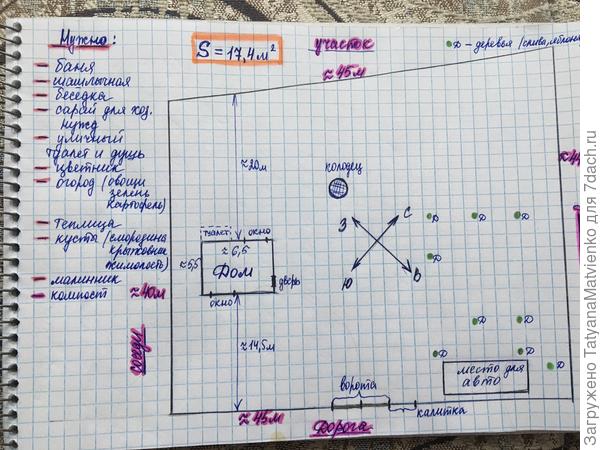 Нужно:
- баня
- шашлычная
- беседка
- сарай для хоз.
нужд
- уличный
туалет и душ
- цветник
- огород (овощи
зелень
картофель)
- теплица
- кусты (смородина
крыжовник
жимолость)
- малинник
- компост
S = 17,4 м²
участок
≈ 45м
Д - деревья (слива, яблоня
≈20м
колодец
З
С
Ю
В
туалет
окно
≈ 6,5
≈5,5
Дом
дверь
окно
≈ 40м
соседи
≈14,5м
Д
Д
Д
Д
Д
Д
Д
Д
Д
Д
место для
авто
ворота
калитка
≈ 45м
Дорога
Загружено TatyanaMatvienko для 7dach.ru